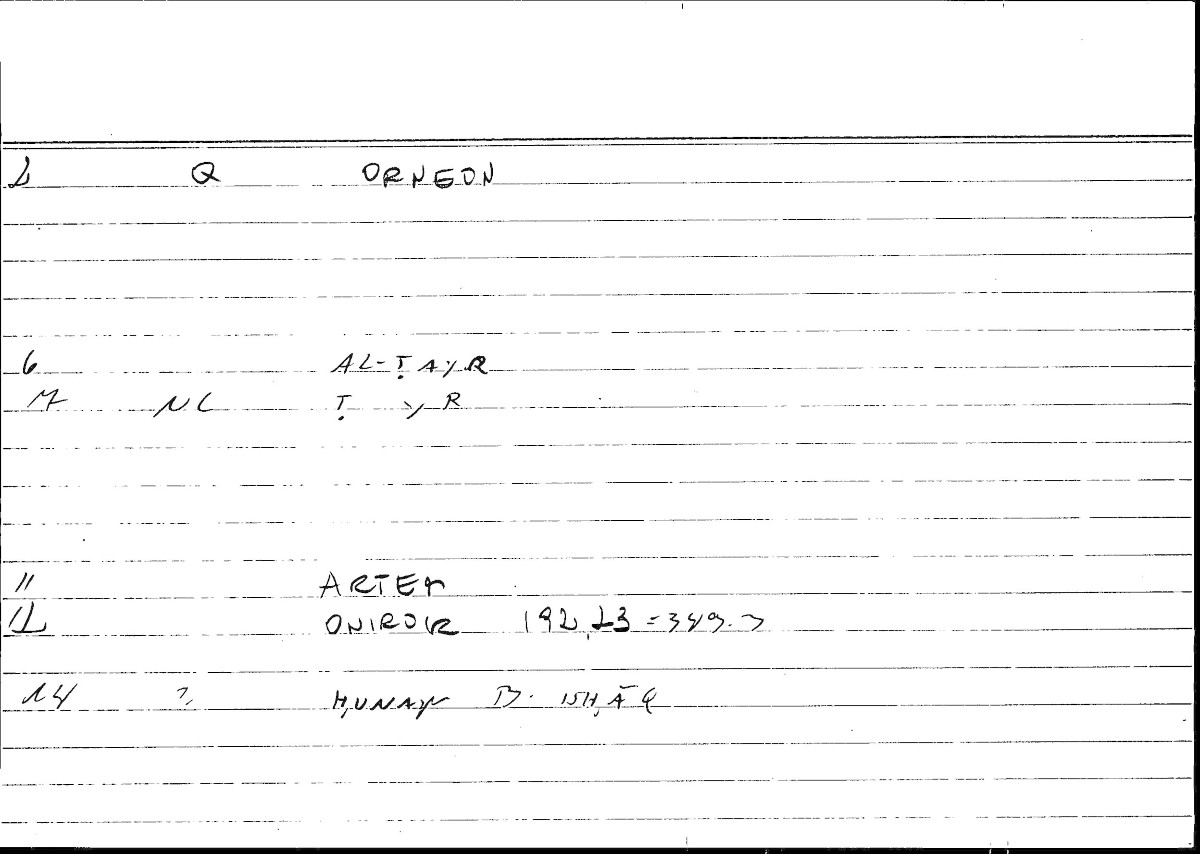 2 Q ORNEON
6 AL-ṬAYR
7 NC Ṭ YR
11 ARTEM
12 ONIROCR 192,23 =349.7
14 2 ḤUNAYN B. ISḤĀQ